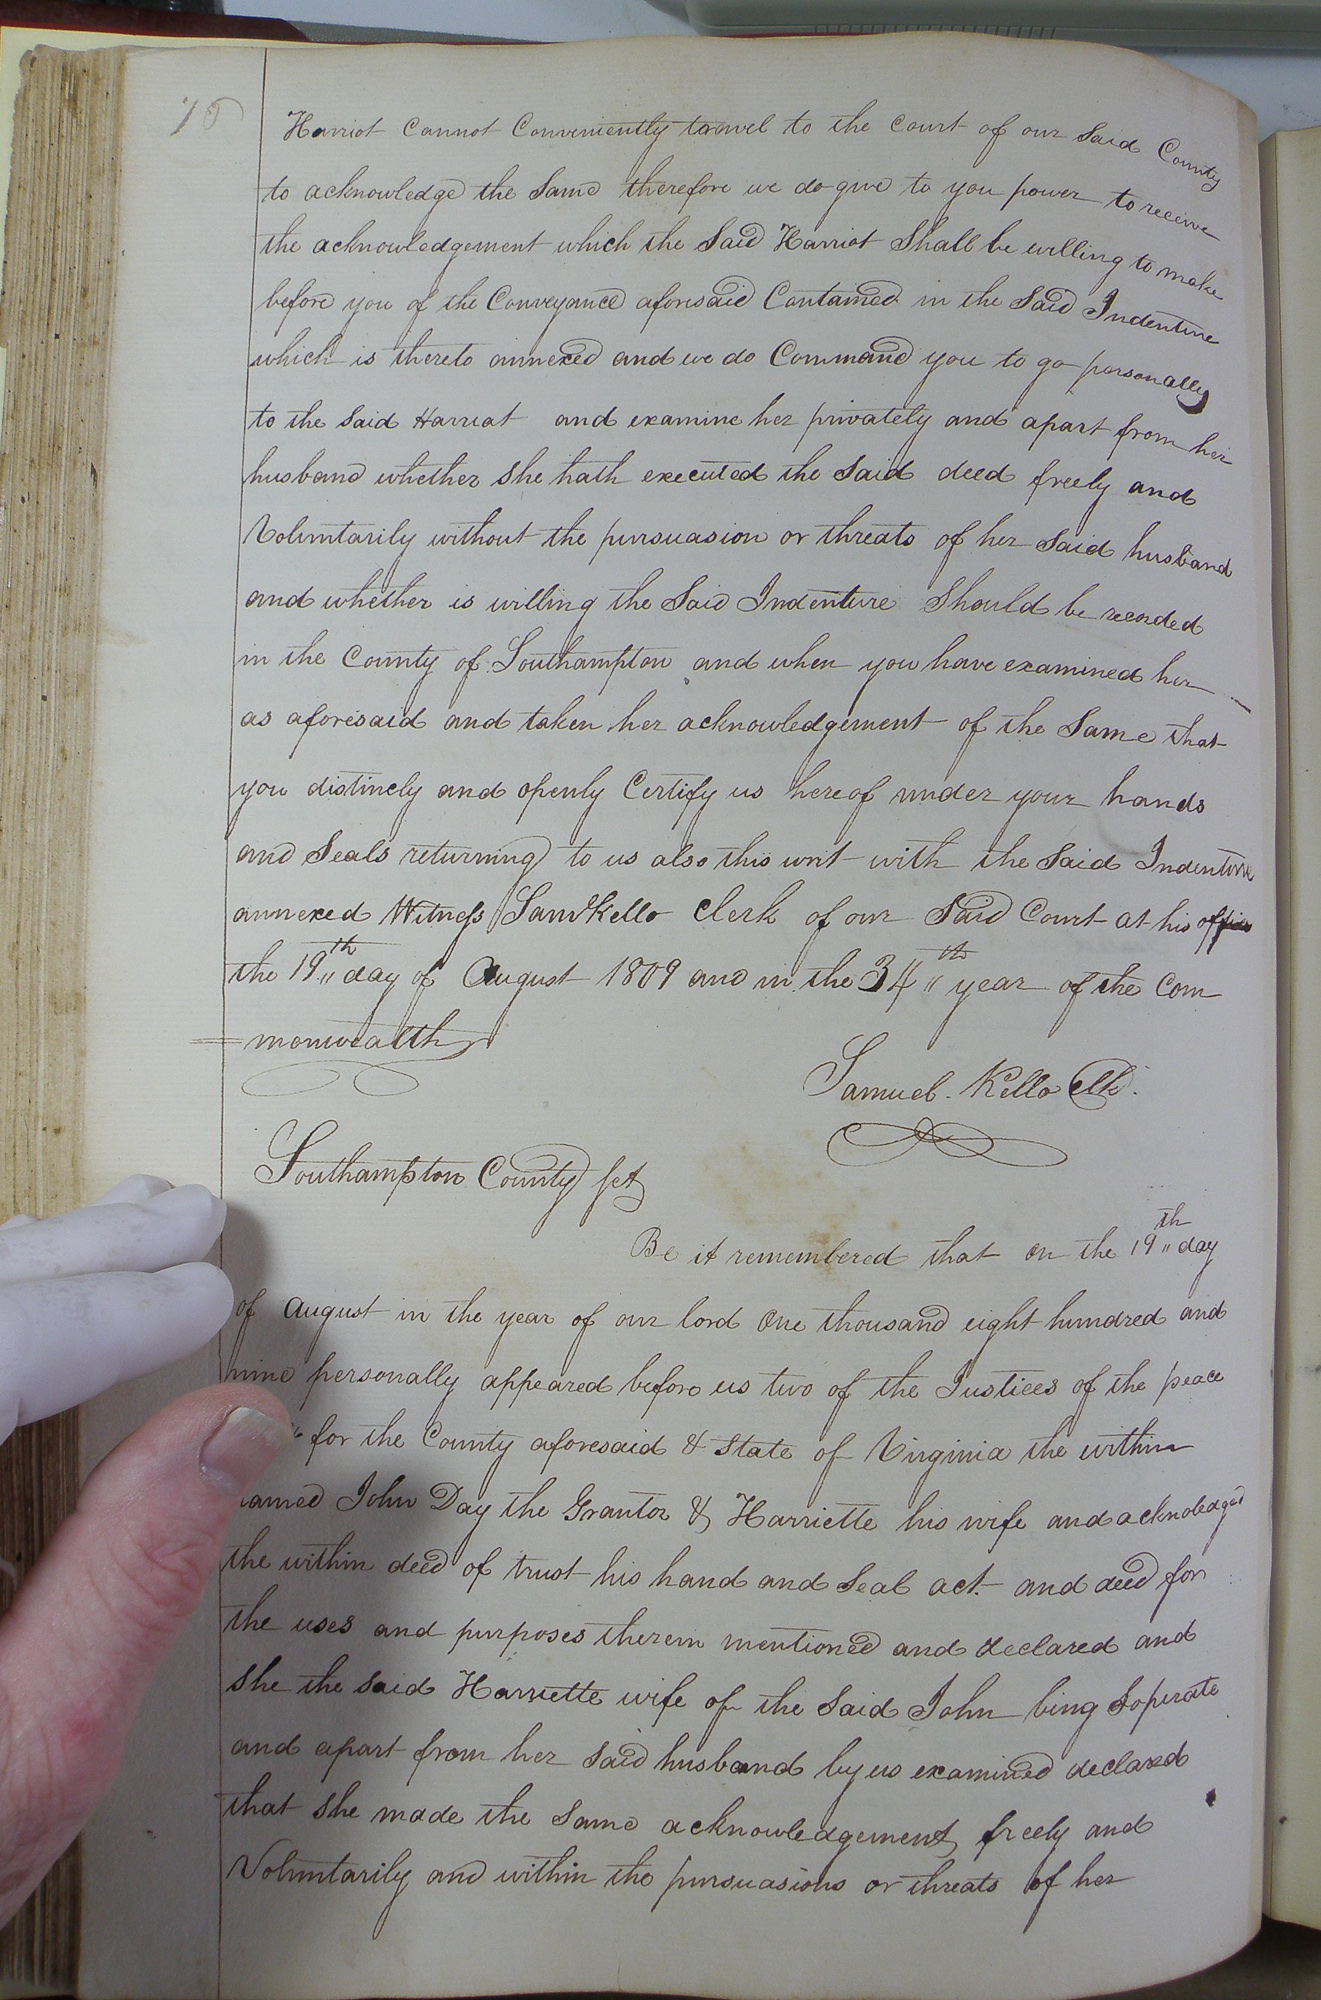 Harriot Cannot Conveniently travel to the Court of our Said County
to acknowledge the Same therefore we do give to you power to receive
the acknowledgement which the Said Harriot Shall be willing to make
before you of the Conveyance aforesaid Contained in the Said Indenture
which is thereto annexed and we do Command you to go personally
to the Said Harriat and examine her privately and apart from her
husband whether She hath executed the Said deed freely and
Voluntarily without the pursuasion or threats of her Said husband
and whether is willing the Said Indenture Should be recorded
in the County of Southampton and when you have examined her
as aforesaid and taken her acknowledgement of the Same that
you distincly and openly Certify us hereof under your hands
and Seals returning to us also this writ with the Said Indenture
annexed Witness Saml Kello Clerk of our Said Court at his office
the 19th day of August 1809 and in the 34th year of the Com
=monwealth
Samuel. Kello Clk.
Southampton County Sct
Be it remembered that on the 19th day
of August in the year of our lord One thousand eight hundred and
nine personally appeared before us two of the Justices of the peace
for the County aforesaid & State of Virginia the within
named John Day the Grantor & Harriette his wife and acknoledged
the within deed of trust his hand and Seal act and deed for
the uses and purposes therein mentioned and declared and
She the said Harriette wife of the Said John bing Soperate
and apart from her Said husband by us examined declared
that She made the Same acknowledgement freely and
Voluntarily and within the pursuasions or threats of her